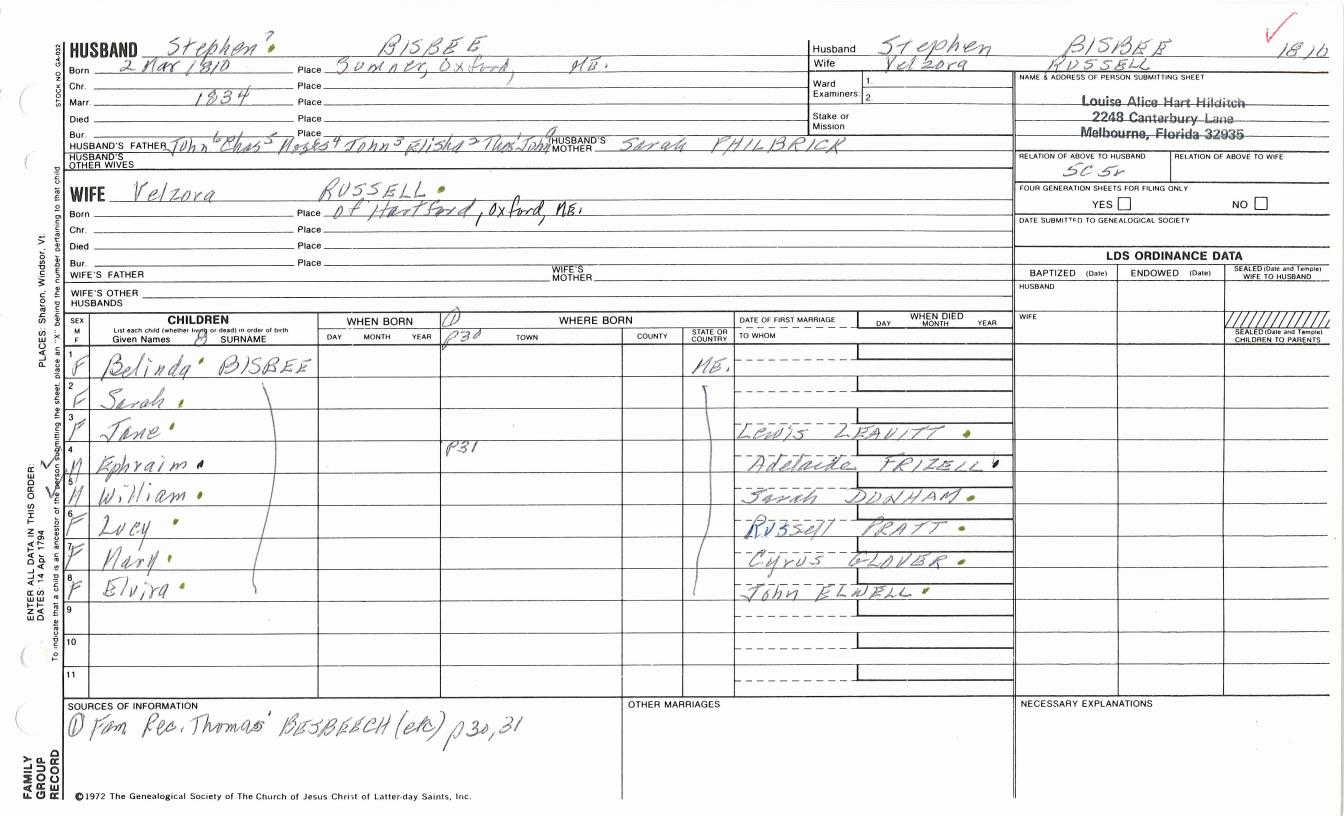 HUSBAND Stephen 7 BISBEE
Born 2 Mar 1810 Place Sumner, Oxford, ME.
Chr. Place
Marr. 1834 Place
Died Place
Bur. Place
HUSBAND'S FATHER John 6 Chas 5 Moses 4 John 3 Elisha 2 HUSBAND'S MOTHER Sarah PHILBRICK
HUSBAND'S OTHER WIVES
WIFE Velzora RUSSELL
Born Place of Hartford, Oxford, ME.
Chr. Place
Died Place
Bur. Place
WIFE'S FATHER WIFE'S MOTHER
WIFE'S OTHER HUSBANDS
Husband Stephen BISBEE 1810
Wife Velzora RUSSELL
Ward Examiners 1. 2.
Stake or Mission
NAME & ADDRESS OF PERSON SUBMITTING SHEET
Louise Alice Hart Hilditch
2248 Canterbury Lane
Melbourne, Florida 32935
RELATION OF ABOVE TO HUSBAND RELATION OF ABOVE TO WIFE
5C 5r
FOUR GENERATION SHEETS FOR FILING ONLY
YES NO
DATE SUBMITTED TO GENEALOGICAL SOCIETY
LDS ORDINANCE DATA
BAPTIZED (Date) ENDOWED (Date) SEALED (Date and Temple) WIFE TO HUSBAND
HUSBAND
WIFE
SEALED (Date and Temple) CHILDREN TO PARENTS
SEX M F
CHILDREN
List each child (whether living or dead) in order of birth
Given Names 8 SURNAME
WHEN BORN
DAY MONTH YEAR
① WHERE BORN
P30 TOWN COUNTY STATE OR COUNTRY
DATE OF FIRST MARRIAGE
TO WHOM
WHEN DIED
DAY MONTH YEAR
1 F Belinda BISBEE ME.
2 F Sarah
3 F Jane Lewis LEAVITT
4 M Ephraim P31 Adelaide FRIZELL
5 M William Sarah DUNHAM
6 F Lucy Russell PRATT
7 F Mary Cyrus GLOVER
8 F Elvira John ELWELL
9
10
11
SOURCES OF INFORMATION
① Fam Rec. Thomas' BESBEECH (etc) p30, 31
OTHER MARRIAGES
NECESSARY EXPLANATIONS
©1972 The Genealogical Society of The Church of Jesus Christ of Latter-day Saints, Inc.
STOCK NO. GA-032
To indicate that a child is an ancestor of the person submitting the sheet, place an "X" behind the number pertaining to that child
ENTER ALL DATA IN THIS ORDER:
DATES: 14 Apr 1794
PLACES: Sharon, Windsor, Vt.
FAMILY GROUP RECORD